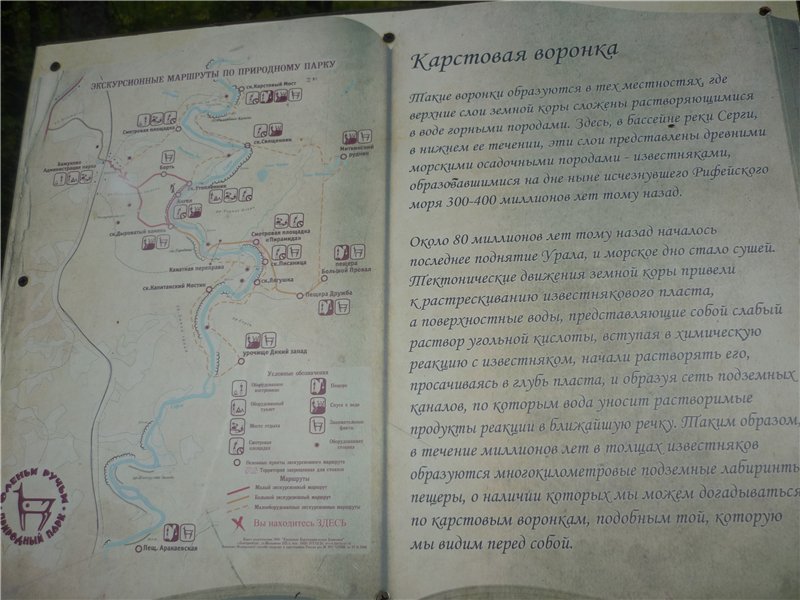 ЭКСКУРСИОННЫЕ МАРШРУТЫ ПО ПРИРОДНОМУ ПАРКУ
ск.Карстовый Мост
Смотровая площадка
ск.Священник
Митькинский
рудник
Бажуково
Администрация парка
Борть
ск.Утопленник
ск.Дыроватый камень
Смотровая площадка
"Пирамида"
ск.Писаница
Канатная переправа
ск.Лягушка
пещера
Большой Провал
ск.Капитанский Мостик
Пещера Дружба
урочище Дикий запад
Условные обозначения
Оборудованное
кострище
Пещера
Оборудованный
туалет
Спуск к воде
Место отдыха
Знаменательные
факты
Смотровая
площадка
Оборудованная
стоянка
Основные пункты экскурсионного маршрута
Территория запрещенная для стоянки
Маршруты
Малый экскурсионный маршрут
Большой экскурсионный маршрут
Малооборудованные экскурсионные маршруты
Вы находитесь ЗДЕСЬ
Пещ. Аракаевская
ОЛЕНЬИ РУЧЬИ
ПРИРОДНЫЙ ПАРК
Карстовая воронка
Такие воронки образуются в тех местностях, где
верхние слои земной коры сложены растворяющимися
в воде горными породами. Здесь, в бассейне реки Серги,
в нижнем ее течении, эти слои представлены древними
морскими осадочными породами - известняками,
образовавшимися на дне ныне исчезнувшего Рифейского
моря 300-400 миллионов лет тому назад.
Около 80 миллионов лет тому назад началось
последнее поднятие Урала, и морское дно стало сушей.
Тектонические движения земной коры привели
к растрескиванию известнякового пласта,
а поверхностные воды, представляющие собой слабый
раствор угольной кислоты, вступая в химическую
реакцию с известняком, начали растворять его,
просачиваясь в глубь пласта, и образуя сеть подземных
каналов, по которым вода уносит растворимые
продукты реакции в ближайшую речку. Таким образом,
в течение миллионов лет в толщах известняков
образуются многокилометровые подземные лабиринты
пещеры, о наличии которых мы можем догадываться
по карстовым воронкам, подобным той, которую
мы видим перед собой.